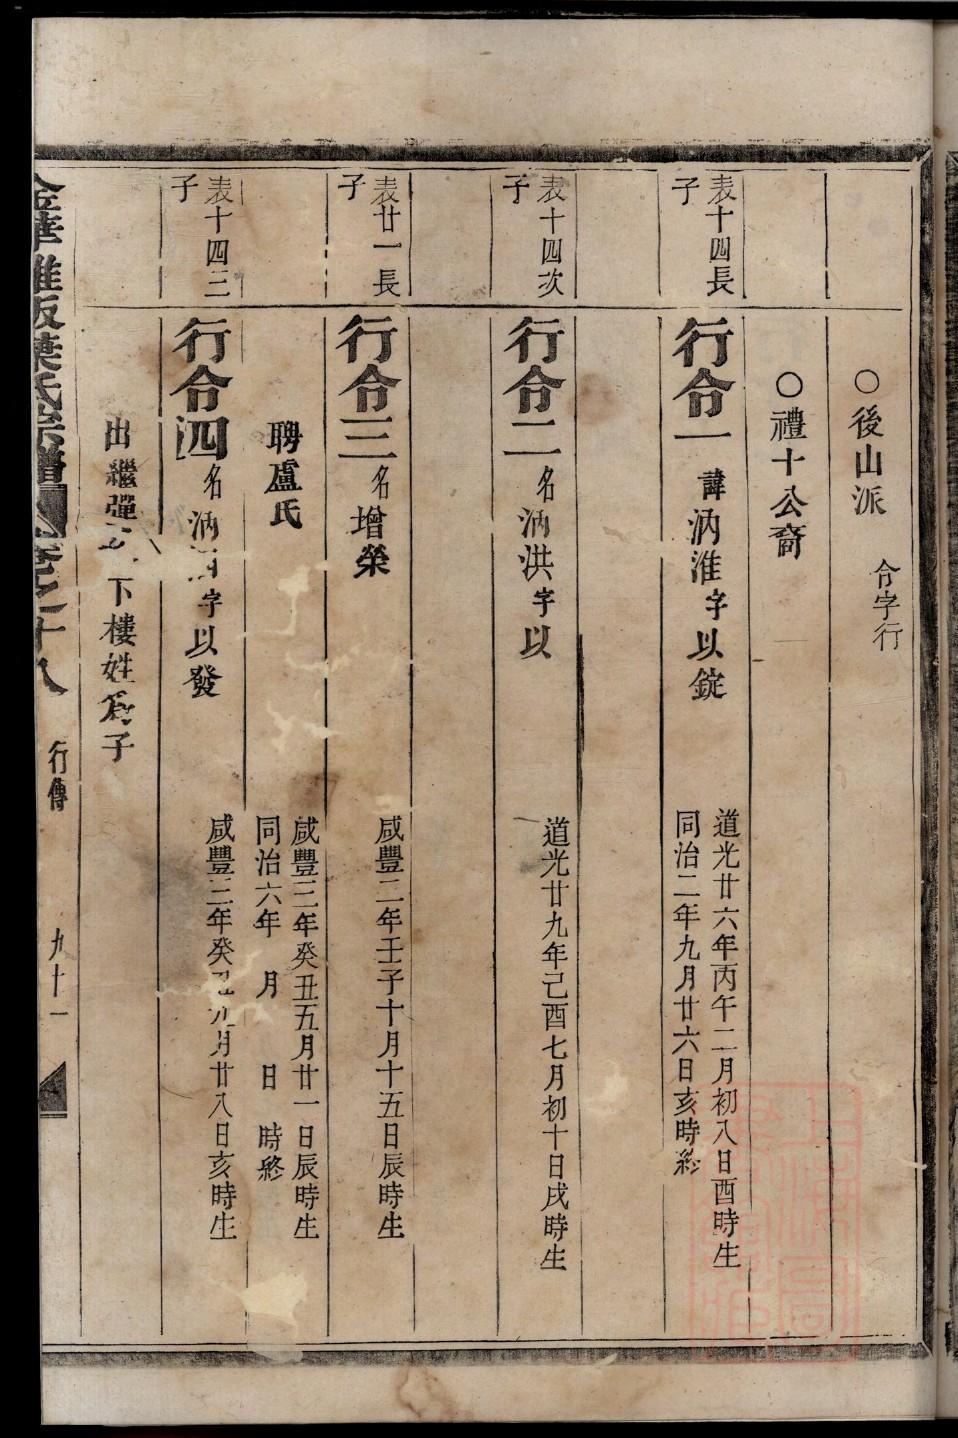 ○後山派
合字行
○禮十公裔
表十四長子
行令一
諱汭淮字以錠
道光廿六年丙午二月初八日酉時生
同治二年九月廿六日亥時終
表十四次子
行令二
名汭洪字以
道光廿九年己酉七月初十日戌時生
表廿一長子
行令三
名增榮
咸豐二年壬子十月十五日辰時生
聘盧氏
咸豐三年癸丑五月廿一日辰時生
同治六年 月 日 時終
表十四三子
行令四
名汭 字以發
咸豐三年癸丑九月廿八日亥時生
出繼彈 下樓姓為子
金華雅畈葉氏宗譜 卷之十八 行傳 九十一